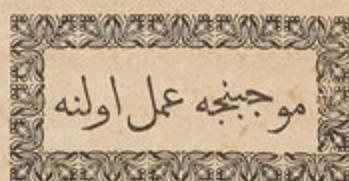 موجبنجه عمل اولنه